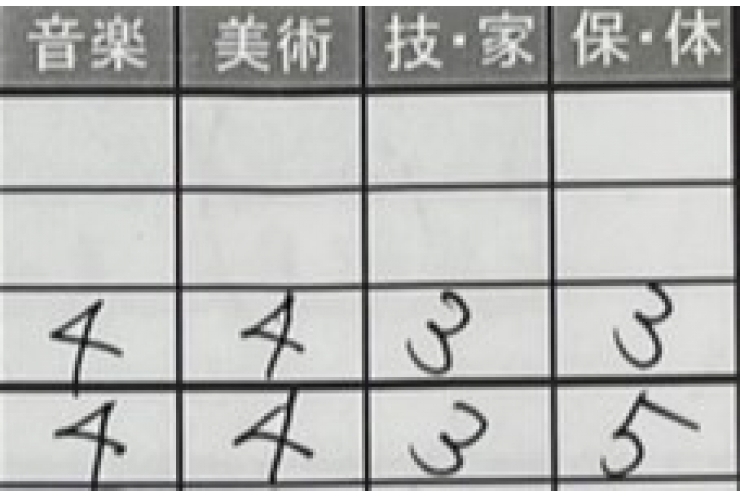 音楽 美術 技・家 保・体
4 4 3 3
4 4 3 5